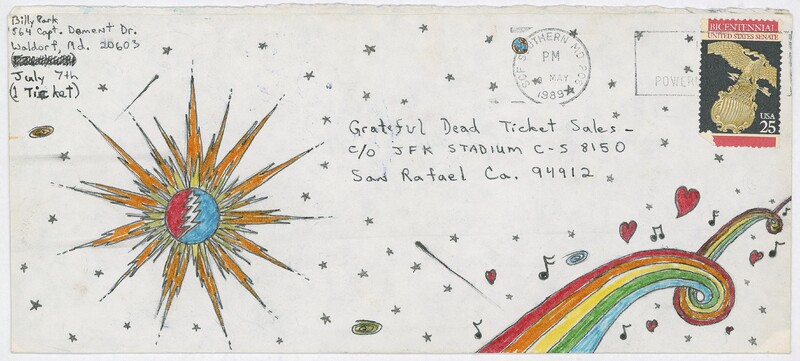 Billy Park
564 Capt. Dement Dr.
Waldorf, Md. 20603
July 7th
(1 Ticket)
SOUTHERN MD
PM
MAY
1989
POWER
BICENTENNIAL
UNITED STATES SENATE
USA
25
Grateful Dead Ticket Sales -
C/O JFK STADIUM C-S 8150
San Rafael Ca. 94912